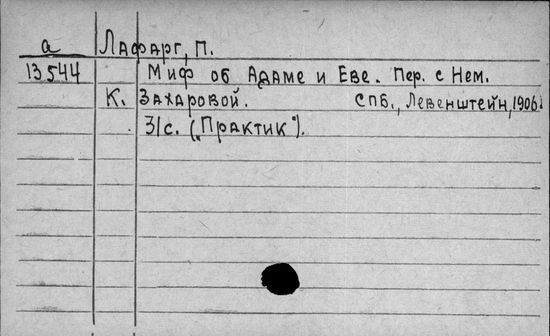 а Лафарг, П.
13544 Миф об Адаме и Еве. Пер. с Нем.
К. Захаровой. СПБ., Левенштейн, 1906.
31с. ("Практик").